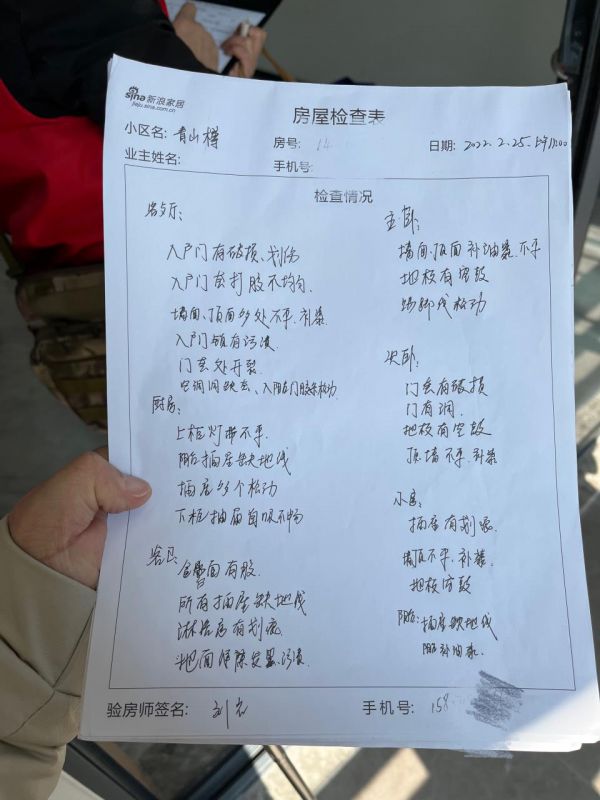 sina新浪家居
jiaju.sina.com.cn
房屋检查表
小区名: 青山樽
房号: 14
日期: 2022.2.25.
业主姓名:
手机号:
检查情况
客厅:
入户门有破损、划伤
入户门套打胶不均匀.
墙面、顶面多处不平、补漆
入户门锁有污渍
门套处开裂
空调洞缺盖、入阳台门胶条松动
厨房:
上柜灯带不平.
阳台插座缺地线
插座多个松动
下柜抽屉自吸不畅
客卫:
面有胶.
所有插座缺地线
淋浴房有划痕
地面污渍
主卧:
墙面、顶面补油漆、不平
地板有空鼓
踢脚线松动
次卧:
门套有破损
门有洞.
地板有空鼓
顶墙不平、补漆
小房:
插座有划痕
墙顶不平、补漆.
地板空鼓
阳台: 插座缺地线
阳台补油漆.
验房师签名: 刘
手机号: 158